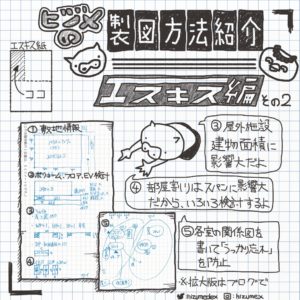 ヒヅメの
製図方法紹介
エスキス編 その2
エスキス紙
ココ
①敷地情報
②ボリューム、フロア、EV検討
③
④
⑤
③屋外施設
建物面積に
影響大だよ
④部屋割りはスパンに影響大
だから、いろいろ検討するよ
⑤各室の関係図を
書いて「うっかり忘れ」
を防止
※拡大版はブログで
hizumedex
hizumexx